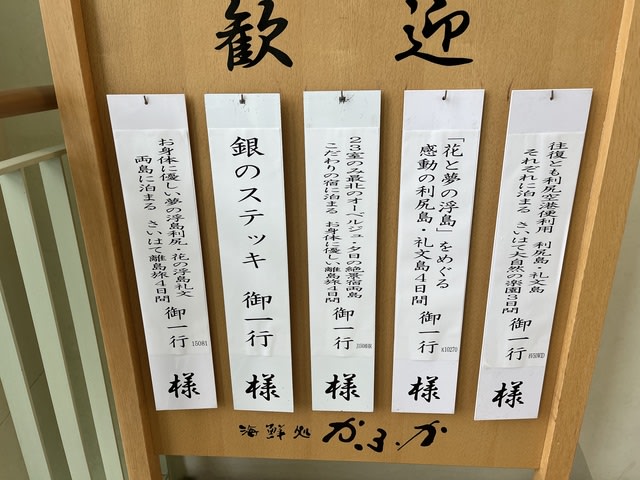 歓迎
往復とも利尻空港便利用 利尻島・礼文島
それぞれに泊まる さいはて大自然の楽園3日間
御一行
様
「花と夢の浮島」をめぐる
感動の利尻島・礼文島4日間
御一行
K10270
様
23室のみ最北のオーベルジュ・夕日の絶景宿両島
こだわりの宿に泊まる お身体に優しい離島旅4日間
御一行
様
銀のステッキ 御一行
様
お身体に優しい夢の浮島利尻・花の浮島礼文
両島に泊まる さいはて離島旅4日間
御一行
15081
様
海鮮処 かふか